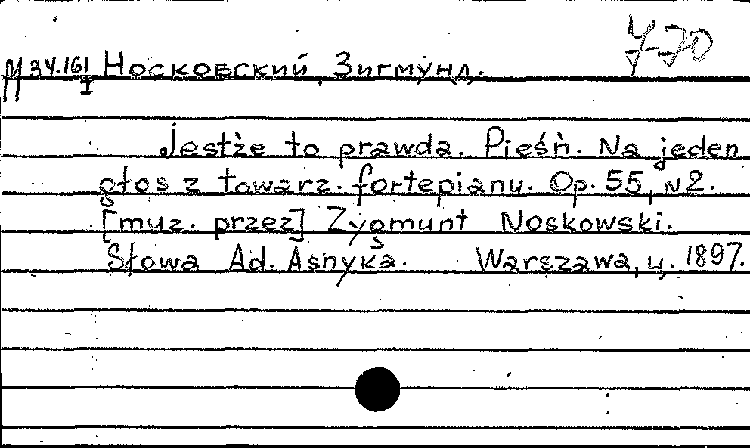 У-70
М 34.161 Носковский, Зигмунд.
I
Jestże to prawda. Pieśń. Na jeden
głos z towarz. fortepianu. Op. 55, N2.
[muz. przez] Zygmunt Noskowski.
Słowa Ad. Asnyka. Warszawa, ц. 1897.